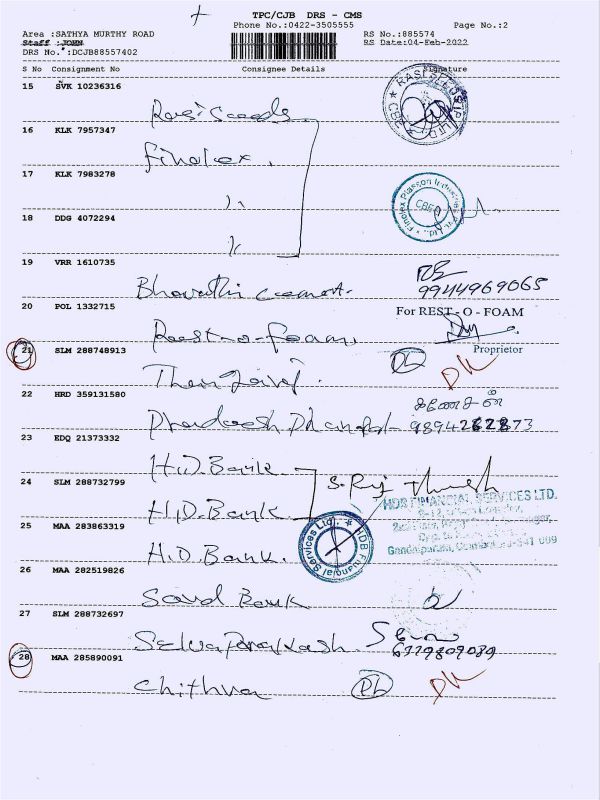 TPC/CJB DRS - CMS
Phone No.:0422-3505555 Page No.:2
Area :SATHYA MURTHY ROAD RS No.:885574
Staff :JOHN RS Date:04-Feb-2022
DRS No.:DCJB88557402
S No Consignment No Consignee Details Signature
15 SVK 10236316
Rasi Seeds
16 KLK 7957347
Finolex
17 KLK 7983278
"
18 DDG 4072294
"
19 VRR 1610735
Bharathi cement.
9944969065
20 POL 1332715
For REST - O - FOAM
Rest-o-foam
Proprietor
21 SLM 288748913
DK
22 HRD 359131580
கணேசன்
23 EDQ 21373332
H.D. Bank
24 SLM 288732799
H.D. Bank
HDB FINANCIAL SERVICES LTD.
25 MAA 283863319
H.D. Bank.
HDB Financial Services Ltd.
26 MAA 282519826
Bank
27 SLM 288732697
Selvaprakash
6379809089
28 MAA 285890091
Chithra
DK